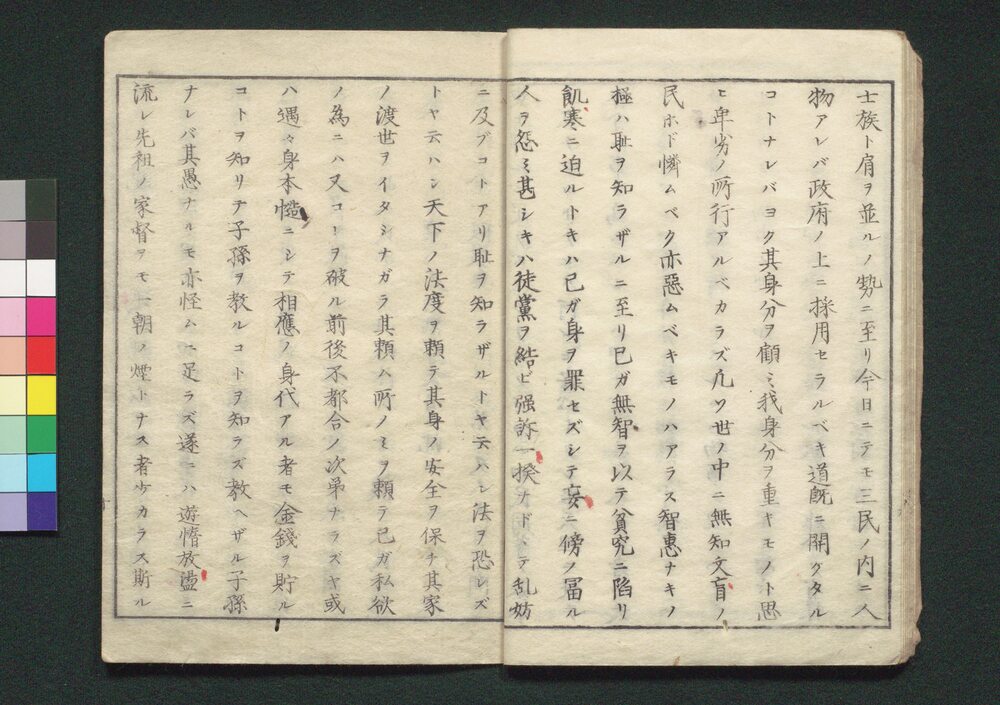 士族ト肩ヲ並ルノ勢ニ至リ今日ニテモ三民ノ内ニ人
物アレバ政府ノ上ニ採用セラルベキ道既ニ開クタル
コトナレバヨク其身分ヲ顧ミ我身分ヲ重キモノト思
ヒ卑劣ノ所行アルベカラズ凡ソ世ノ中ニ無知文盲ノ
民ホド憐ムベク亦惡ムベキモノハアラス智惠ナキノ
極ハ耻ヲ知ラザルニ至リ已ガ無智ヲ以テ貧究ニ陷リ
飢寒ニ迫ルトキハ已ガ身ヲ罪セズシテ妄ニ傍ノ冨ル
人ヲ怨ミ甚シキハ徒黨ヲ結ビ强訴一揆ナドトテ乱妨
ニ及ブコトアリ耻ヲ知ラザルトヤ云ハン法ヲ恐レズ
トヤ云ハン天下ノ法度ヲ頼テ其身ノ安全ヲ保チ其家
ノ渡世ヲイタシナガラ其頼ハ所ノミヲ頼テ已ガ私欲
ノ為ニハ又コレヲ破ル前後不都合ノ次弟ナラズヤ或
ハ遇々身本慥ニシテ相應ノ身代アル者モ金錢ヲ貯ル
コトヲ知リテ子孫ヲ教ルコトヲ知ラズ教ヘザル子孫
ナレバ其愚ナルモ亦怪ムニ足ラズ遂ニハ遊惰放盪ニ
流レ先祖ノ家督ヲモ一朝ノ煙トナス者少カラス斯ル